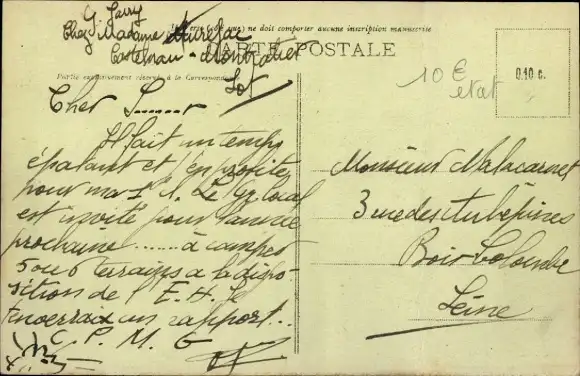 G. Jarry
Chez Madame
Castelnau-Montratier
Lot
ne doit comporter aucune inscription manuscrite
CARTE POSTALE
Partie exclusivement réservée à la Correspondance
10 €
état
0.10 c.
Cher S......r
Il fait un temps
épatant et j'en profite
pour ma
est invité pour l'année
prochaine ........ à camper
5 ou 6 terrains à la dispo-
sition de l'E.
un rapport...
C. P. M. G
Monsieur Malacarnet
3 rue des Aubépines
Bois-Colombe
Seine